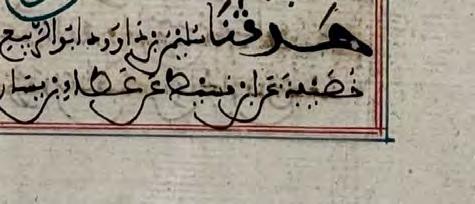 حدثنا سليمن بن داوود ابو الربيع
خصيفة عن ابن قسيط عن عطاء بن يسار